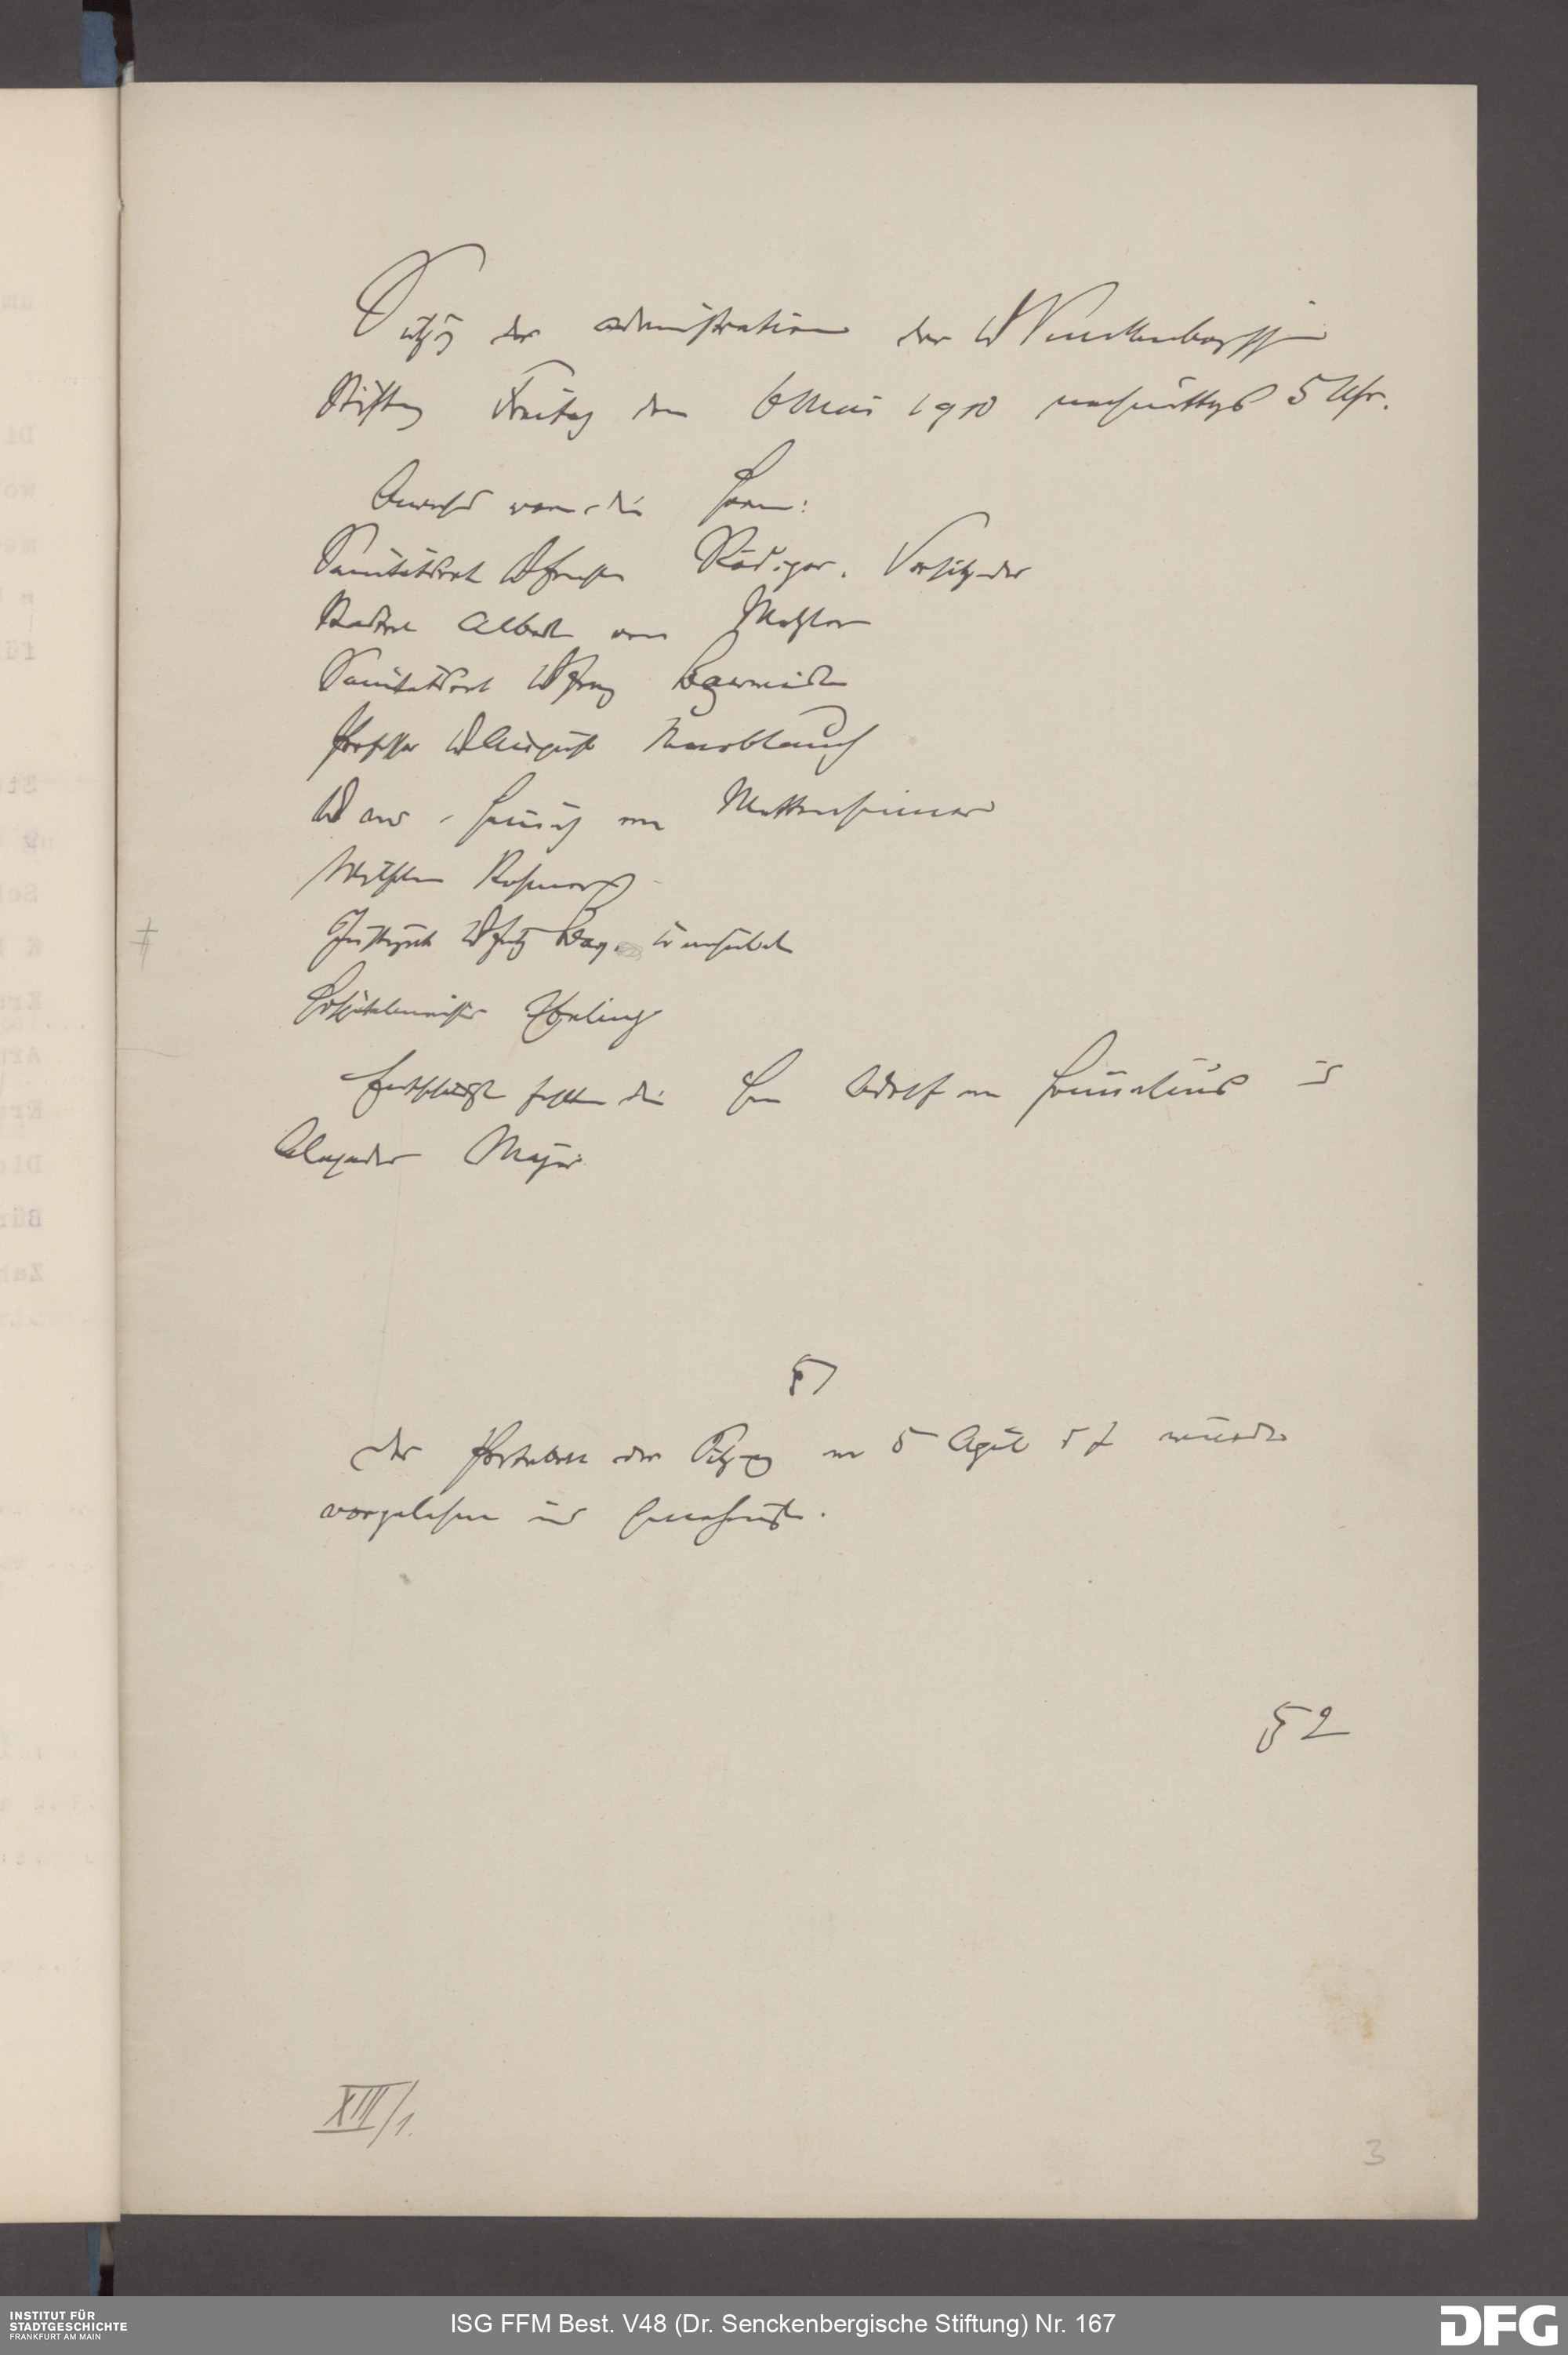 Sitzung der Administration der Dr Senckenbergischen
Stiftung Freitag den 6 Mai 1910 nachmittags 5 Uhr.
Anwesend waren die Herren:
Sanitätsrat Dr Ernst Rödiger. Vorsitzender
Stadtrat Albert von Metzler
Sanitätsrat Dr Franz
Professor Dr August Knoblauch
Dr Heinrich von Mettenheimer
Wilhelm
Justizrat Dr Fritz Berg. Consulent
Hospitalmeister Ebeling
Entschuldigt fehlten die Herren Adolf von und
Alexander Majer
§ 1
Der Protokoll der Sitzung vom 5 April d J wurde
vorgelesen und genehmigt.
§ 2
XIII/1.
3
INSTITUT FÜR
STADTGESCHICHTE
FRANKFURT AM MAIN
ISG FFM Best. V48 (Dr. Senckenbergische Stiftung) Nr. 167
DFG